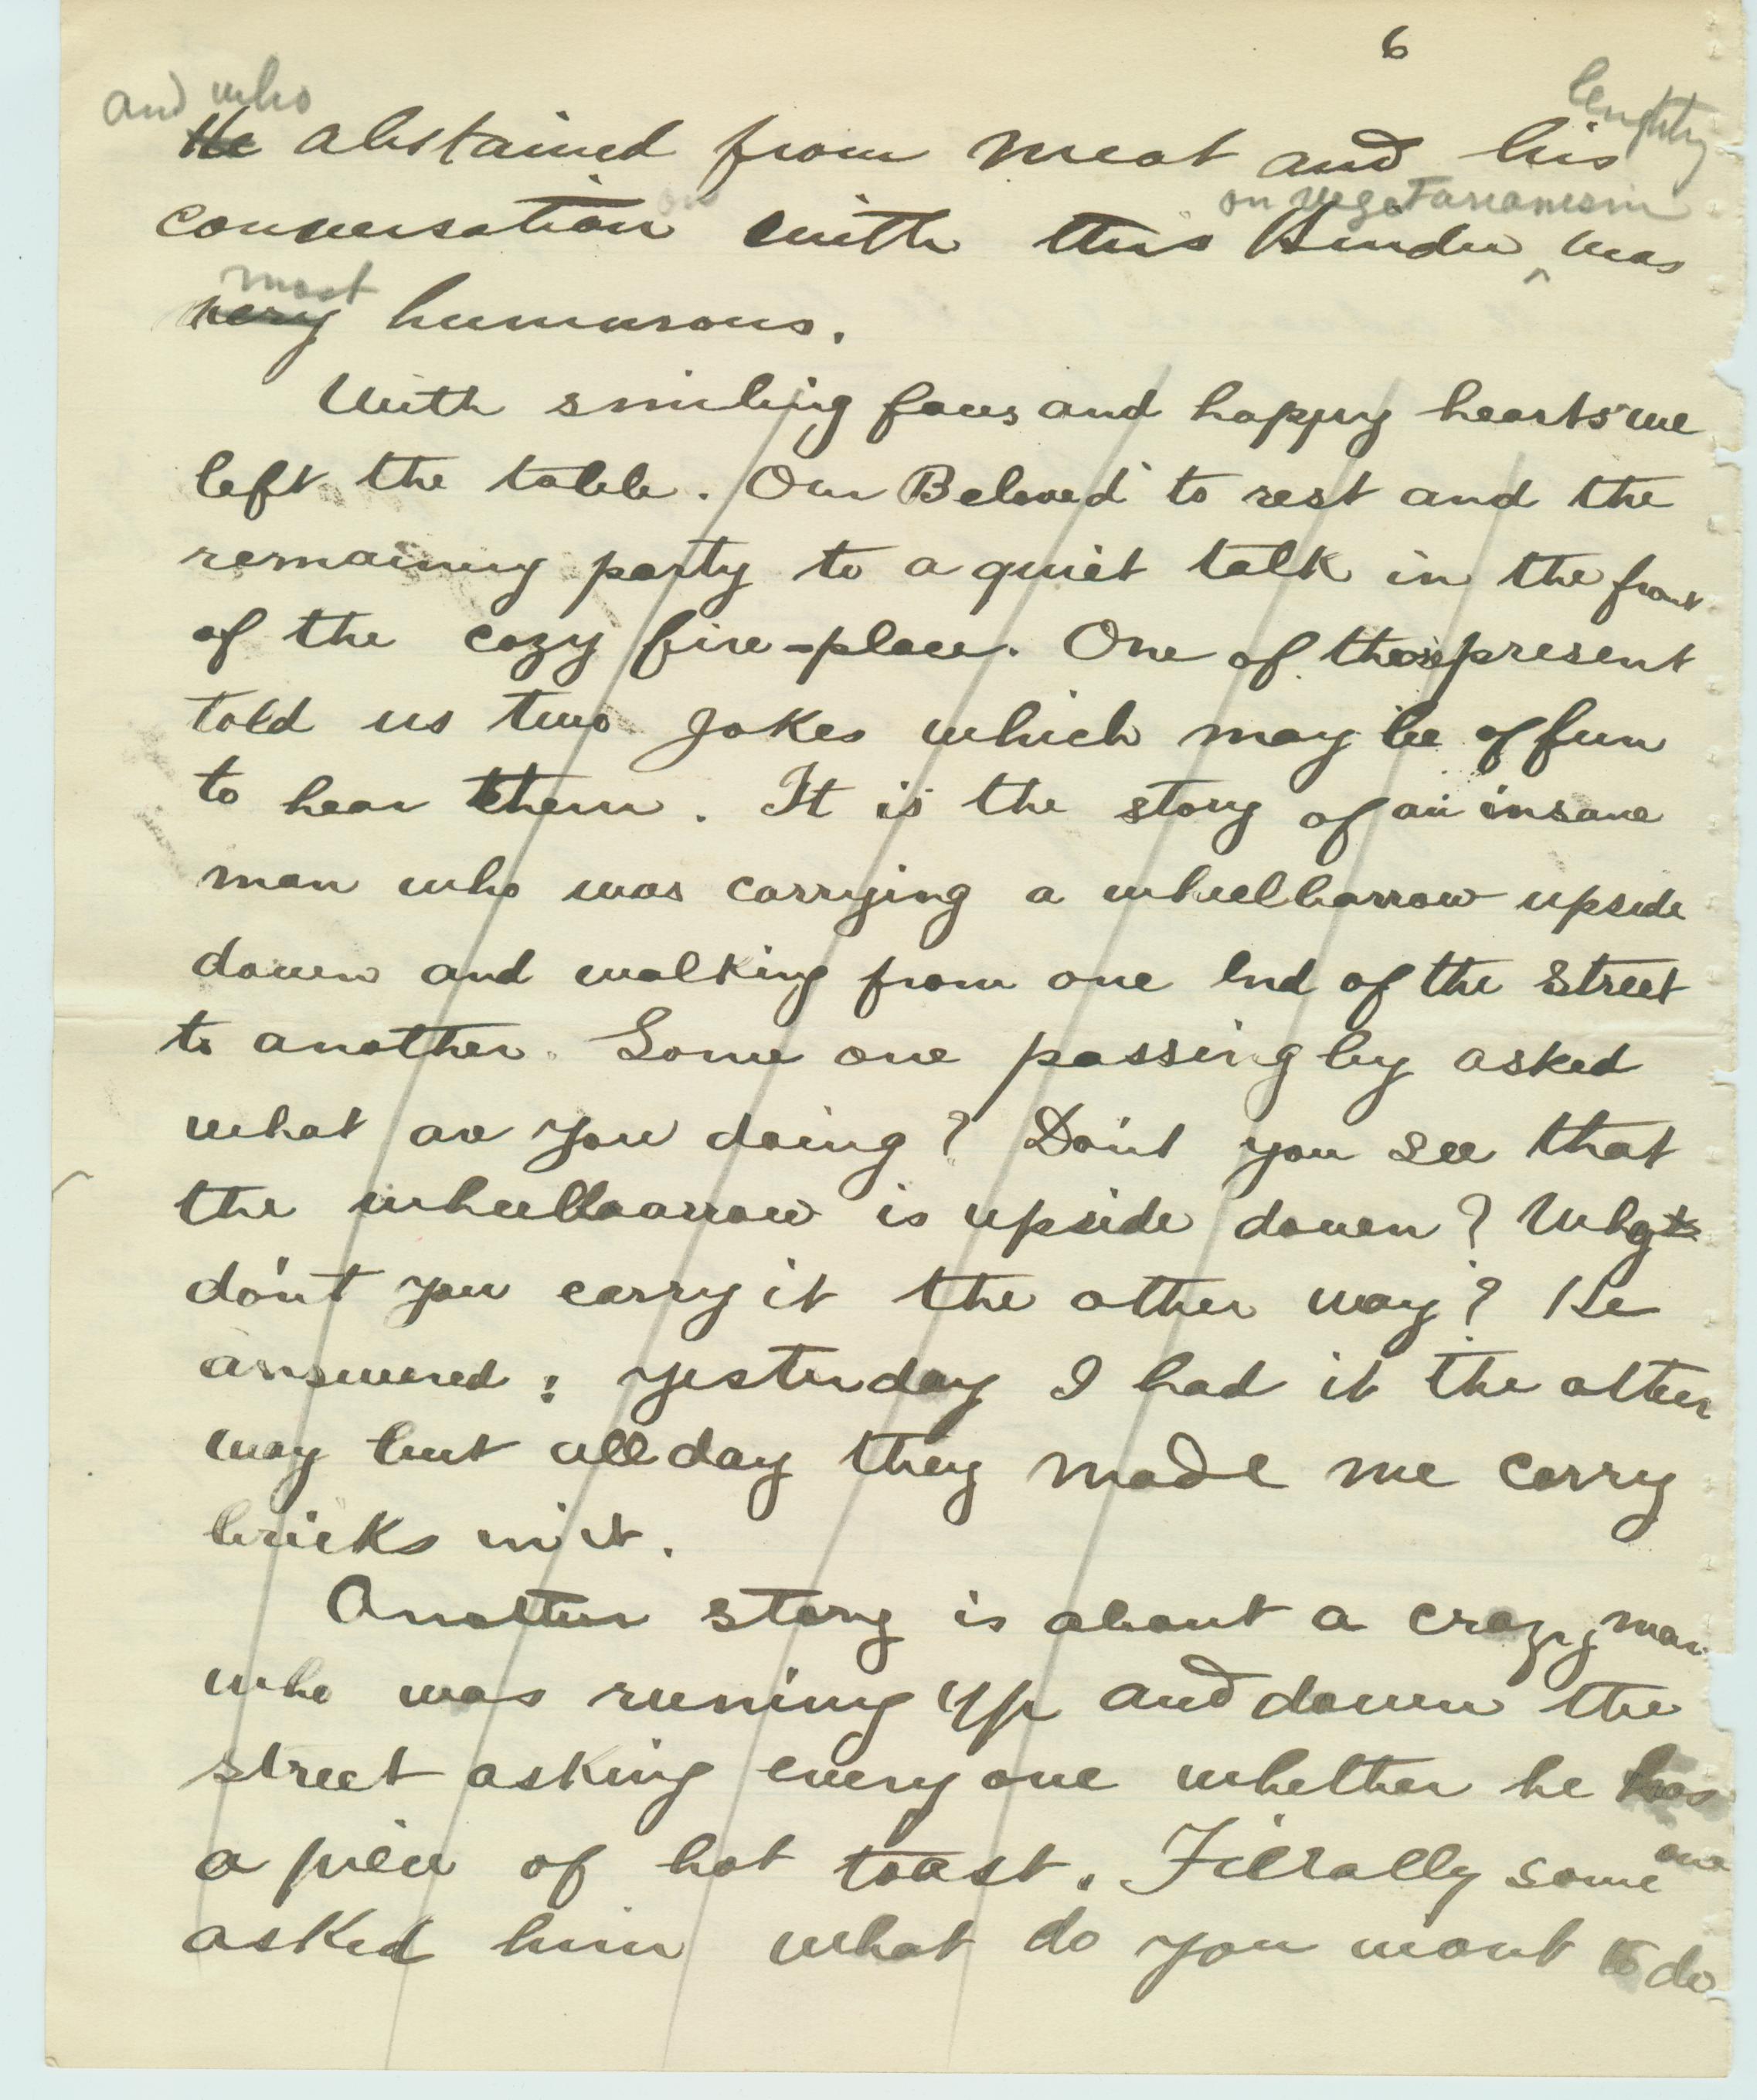 6
and who lengthy
He abstained from meat and his
on on vegetarianism
conversation with this Hindu ^ was
most
very humurous.
With smiling faces and happy hearts we
left the table. Our Beloved to rest and the
remaining party to a quiet talk in the front
of the cozy fire-place. One of those present
told us two Jokes which may be of fun
to hear them. It is the story of an insane
man who was carrying a wheelbarrow upside
down and walking from one End of the Street
to another. Some one passing by asked
what are you doing? Don't you see that
the wheelbarrow is upside down? Why
don't you carry it the other way? He
answered: yesterday I had it the other
way but all day they made me carry
bricks in it.
Another story is about a crazy man
who was runing up and down the
street asking every one whether he has
a piece of hot toast. Finally some one
asked him what do you want to do